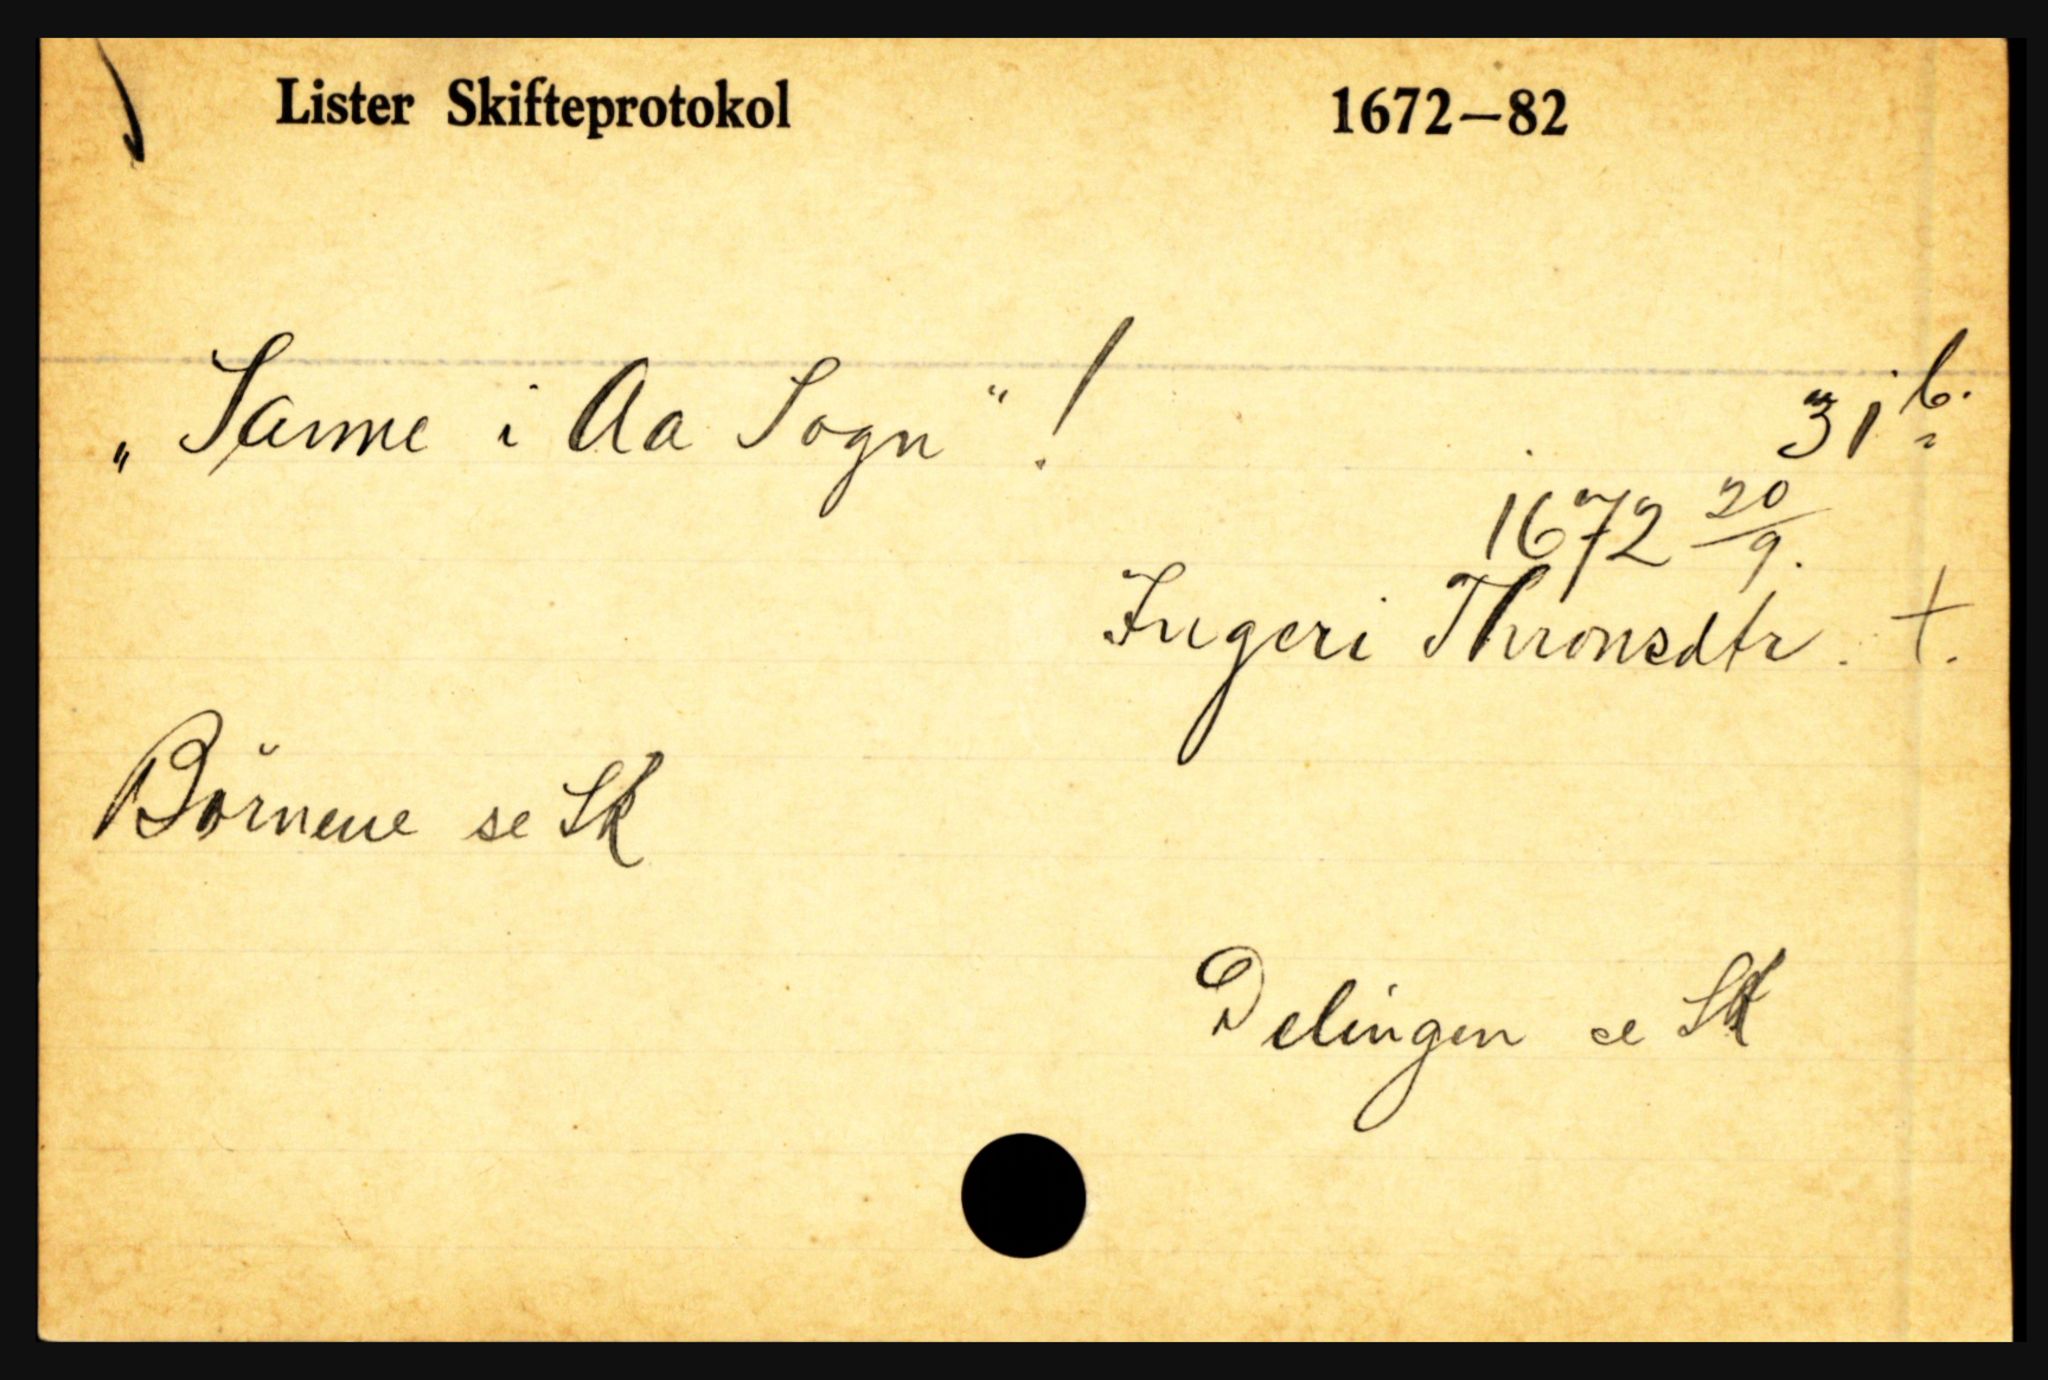 Lister Skifteprotokol 1672–82
„Sanne i Aa Sogn“! 31 b.
1672 20/9.
Ingeri Thronsdtr. †.
Börnene se Sk
Delingen se Sk